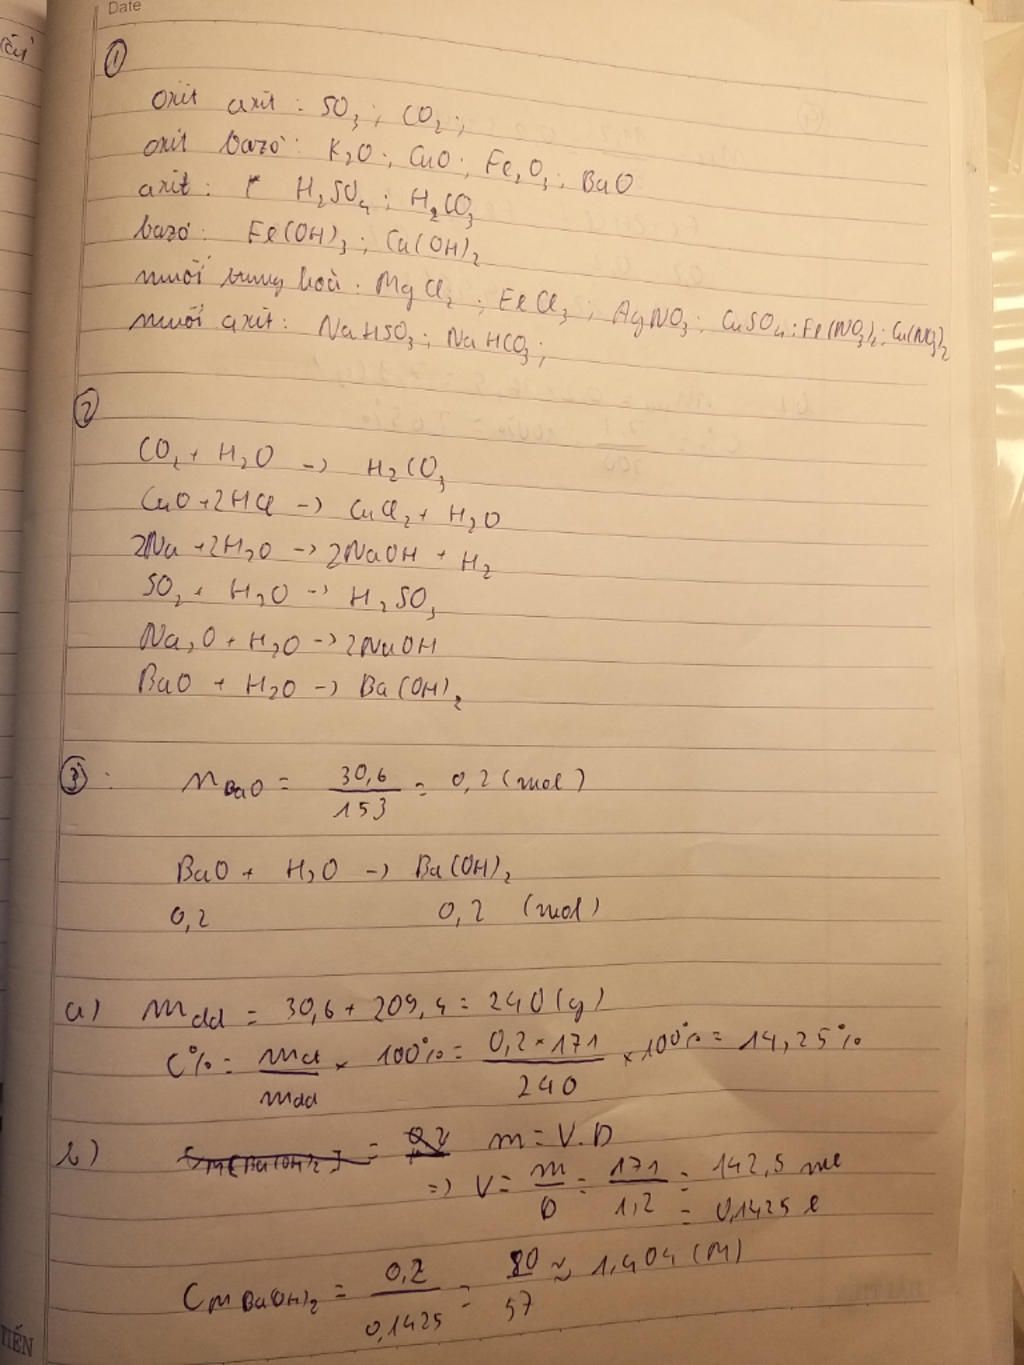 Date
①
oxit axit : SO₃ ; CO₂ ;
oxit bazơ : K₂O ; CuO ; Fe₂O₃ ; BaO
axit : H₂SO₄ ; H₂CO₃
bazơ : Fe(OH)₃ ; Cu(OH)₂
muối trung hoà : MgCl₂ ; FeCl₃ ; AgNO₃ ; CuSO₄ ; Fe(NO₃)₂ ; Cu(NO₃)₂
muối axit : NaHSO₃ ; NaHCO₃ ;
②
CO₂ + H₂O -> H₂CO₃
CuO + 2HCl -> CuCl₂ + H₂O
2Na + 2H₂O -> 2NaOH + H₂
SO₂ + H₂O -> H₂SO₃
Na₂O + H₂O -> 2NaOH
BaO + H₂O -> Ba(OH)₂
③ : n BaO = 30,6 / 153 = 0,2 (mol)
BaO + H₂O -> Ba(OH)₂
0,2 0,2 (mol)
a) mdd = 30,6 + 209,4 = 240 (g)
C% = mct / mdd × 100% = 0,2 × 171 / 240 × 100% = 14,25%
b) m = V.D
=> V = m / D = 171 / 1,2 = 142,5 ml
= 0,1425 l
CM Ba(OH)₂ = 0,2 / 0,1425 = 80 / 57 ≈ 1,404 (M)
TIẾN